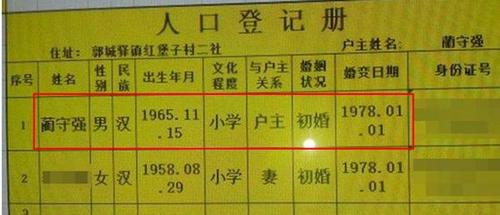 人口登记册
住址：郭城驿镇红堡子村二社 户主姓名：蔺守强
序号 姓名 性别 民族 出生年月 文化程度 与户主关系 婚姻状况 婚变日期 身份证号
1 蔺守强 男 汉 1965.11.15 小学 户主 初婚 1978.01.01
2 女 汉 1958.08.29 小学 妻 初婚 1978.01.01